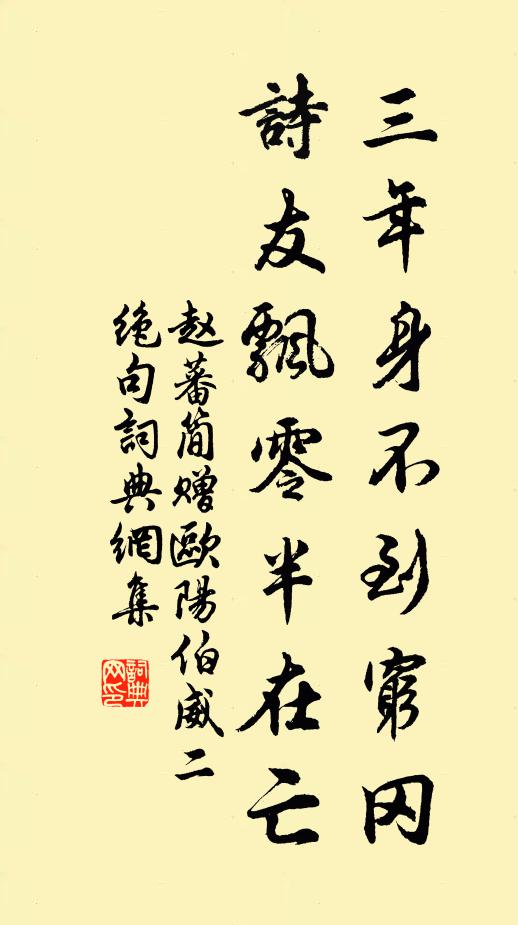 三年身不到窮冈
詩友飄零半在亡
赵蕃简赠歐陽伯威二
绝句詞典網集
詞典
网印